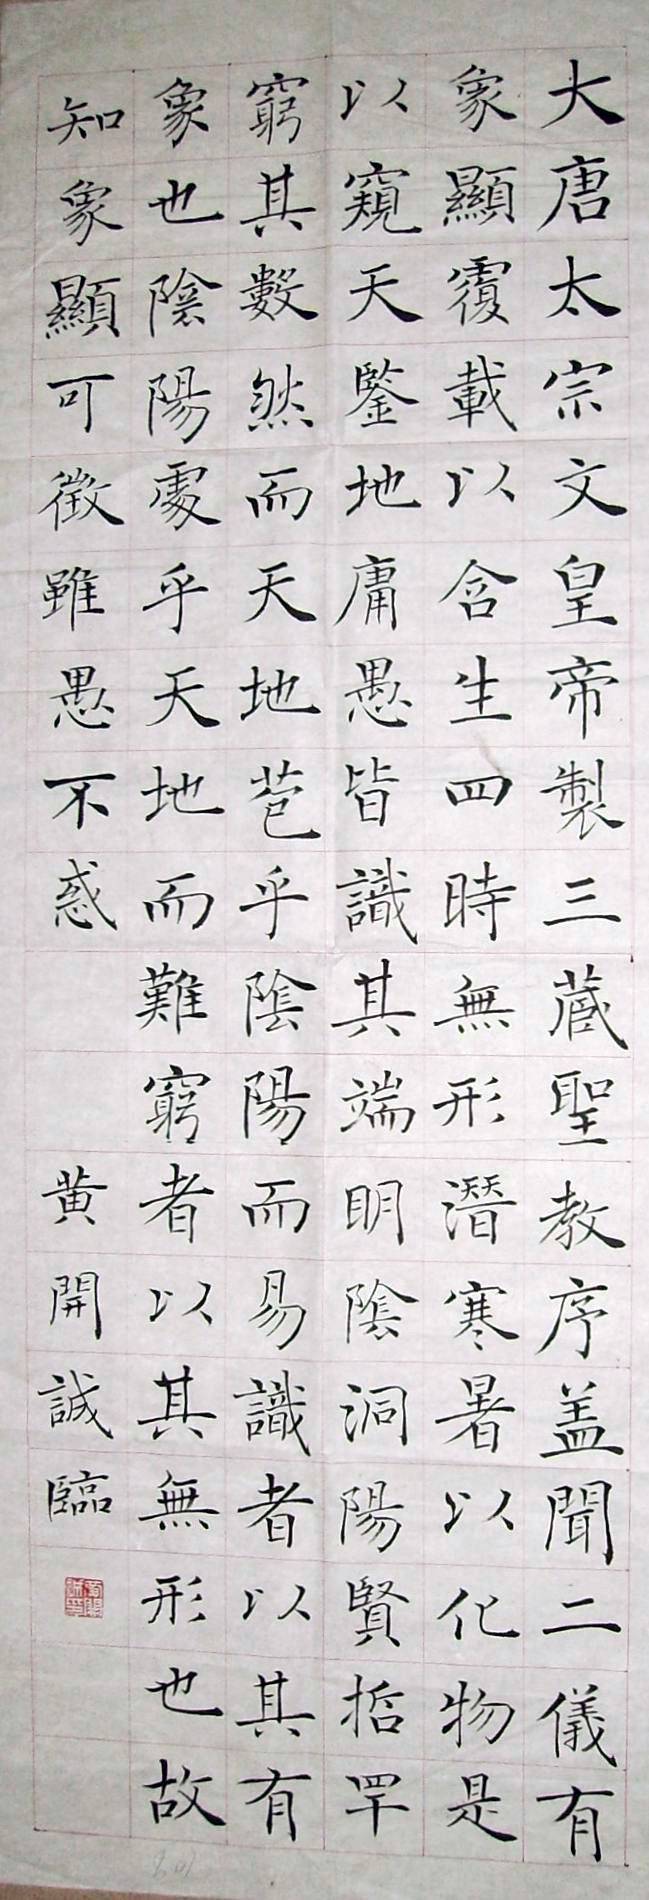 大唐太宗文皇帝製三藏聖教序盖聞二儀有
象顯覆載以含生四時無形潛寒暑以化物是
以窺天鑒地庸愚皆識其端明陰洞陽賢哲罕
窮其數然而天地苞乎陰陽而易識者以其有
象也陰陽處乎天地而難窮者以其無形也故
知象顯可徵雖愚不惑
黄開誠臨